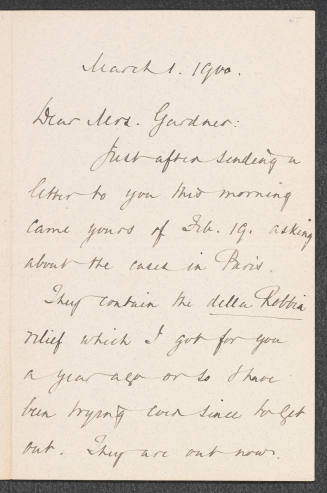 March 1. 1900.
Dear Mrs. Gardner:
Just after sending a
letter to you this morning
came yours of Feb. 19. asking
about the cases in Paris.
They contain the della Robbia
relief which I got for you
a year ago or so & have
been trying ever since to get
out. They are out now.